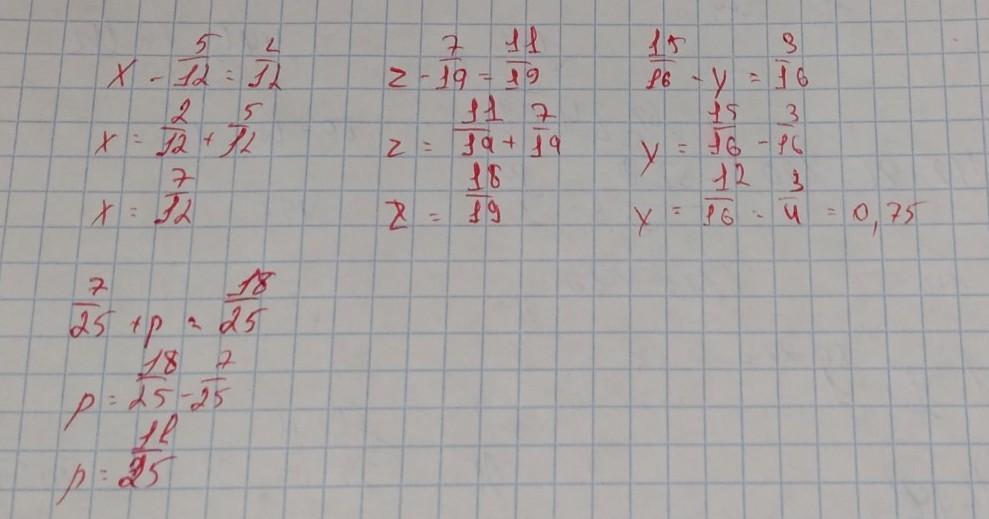 x - 5/12 = 2/12
x = 2/12 + 5/12
x = 7/12
z - 7/19 = 11/19
z = 11/19 + 7/19
z = 18/19
15/16 - y = 3/16
y = 15/16 - 3/16
y = 12/16 = 3/4 = 0,75
7/25 + p = 18/25
p = 18/25 - 7/25
p = 11/25